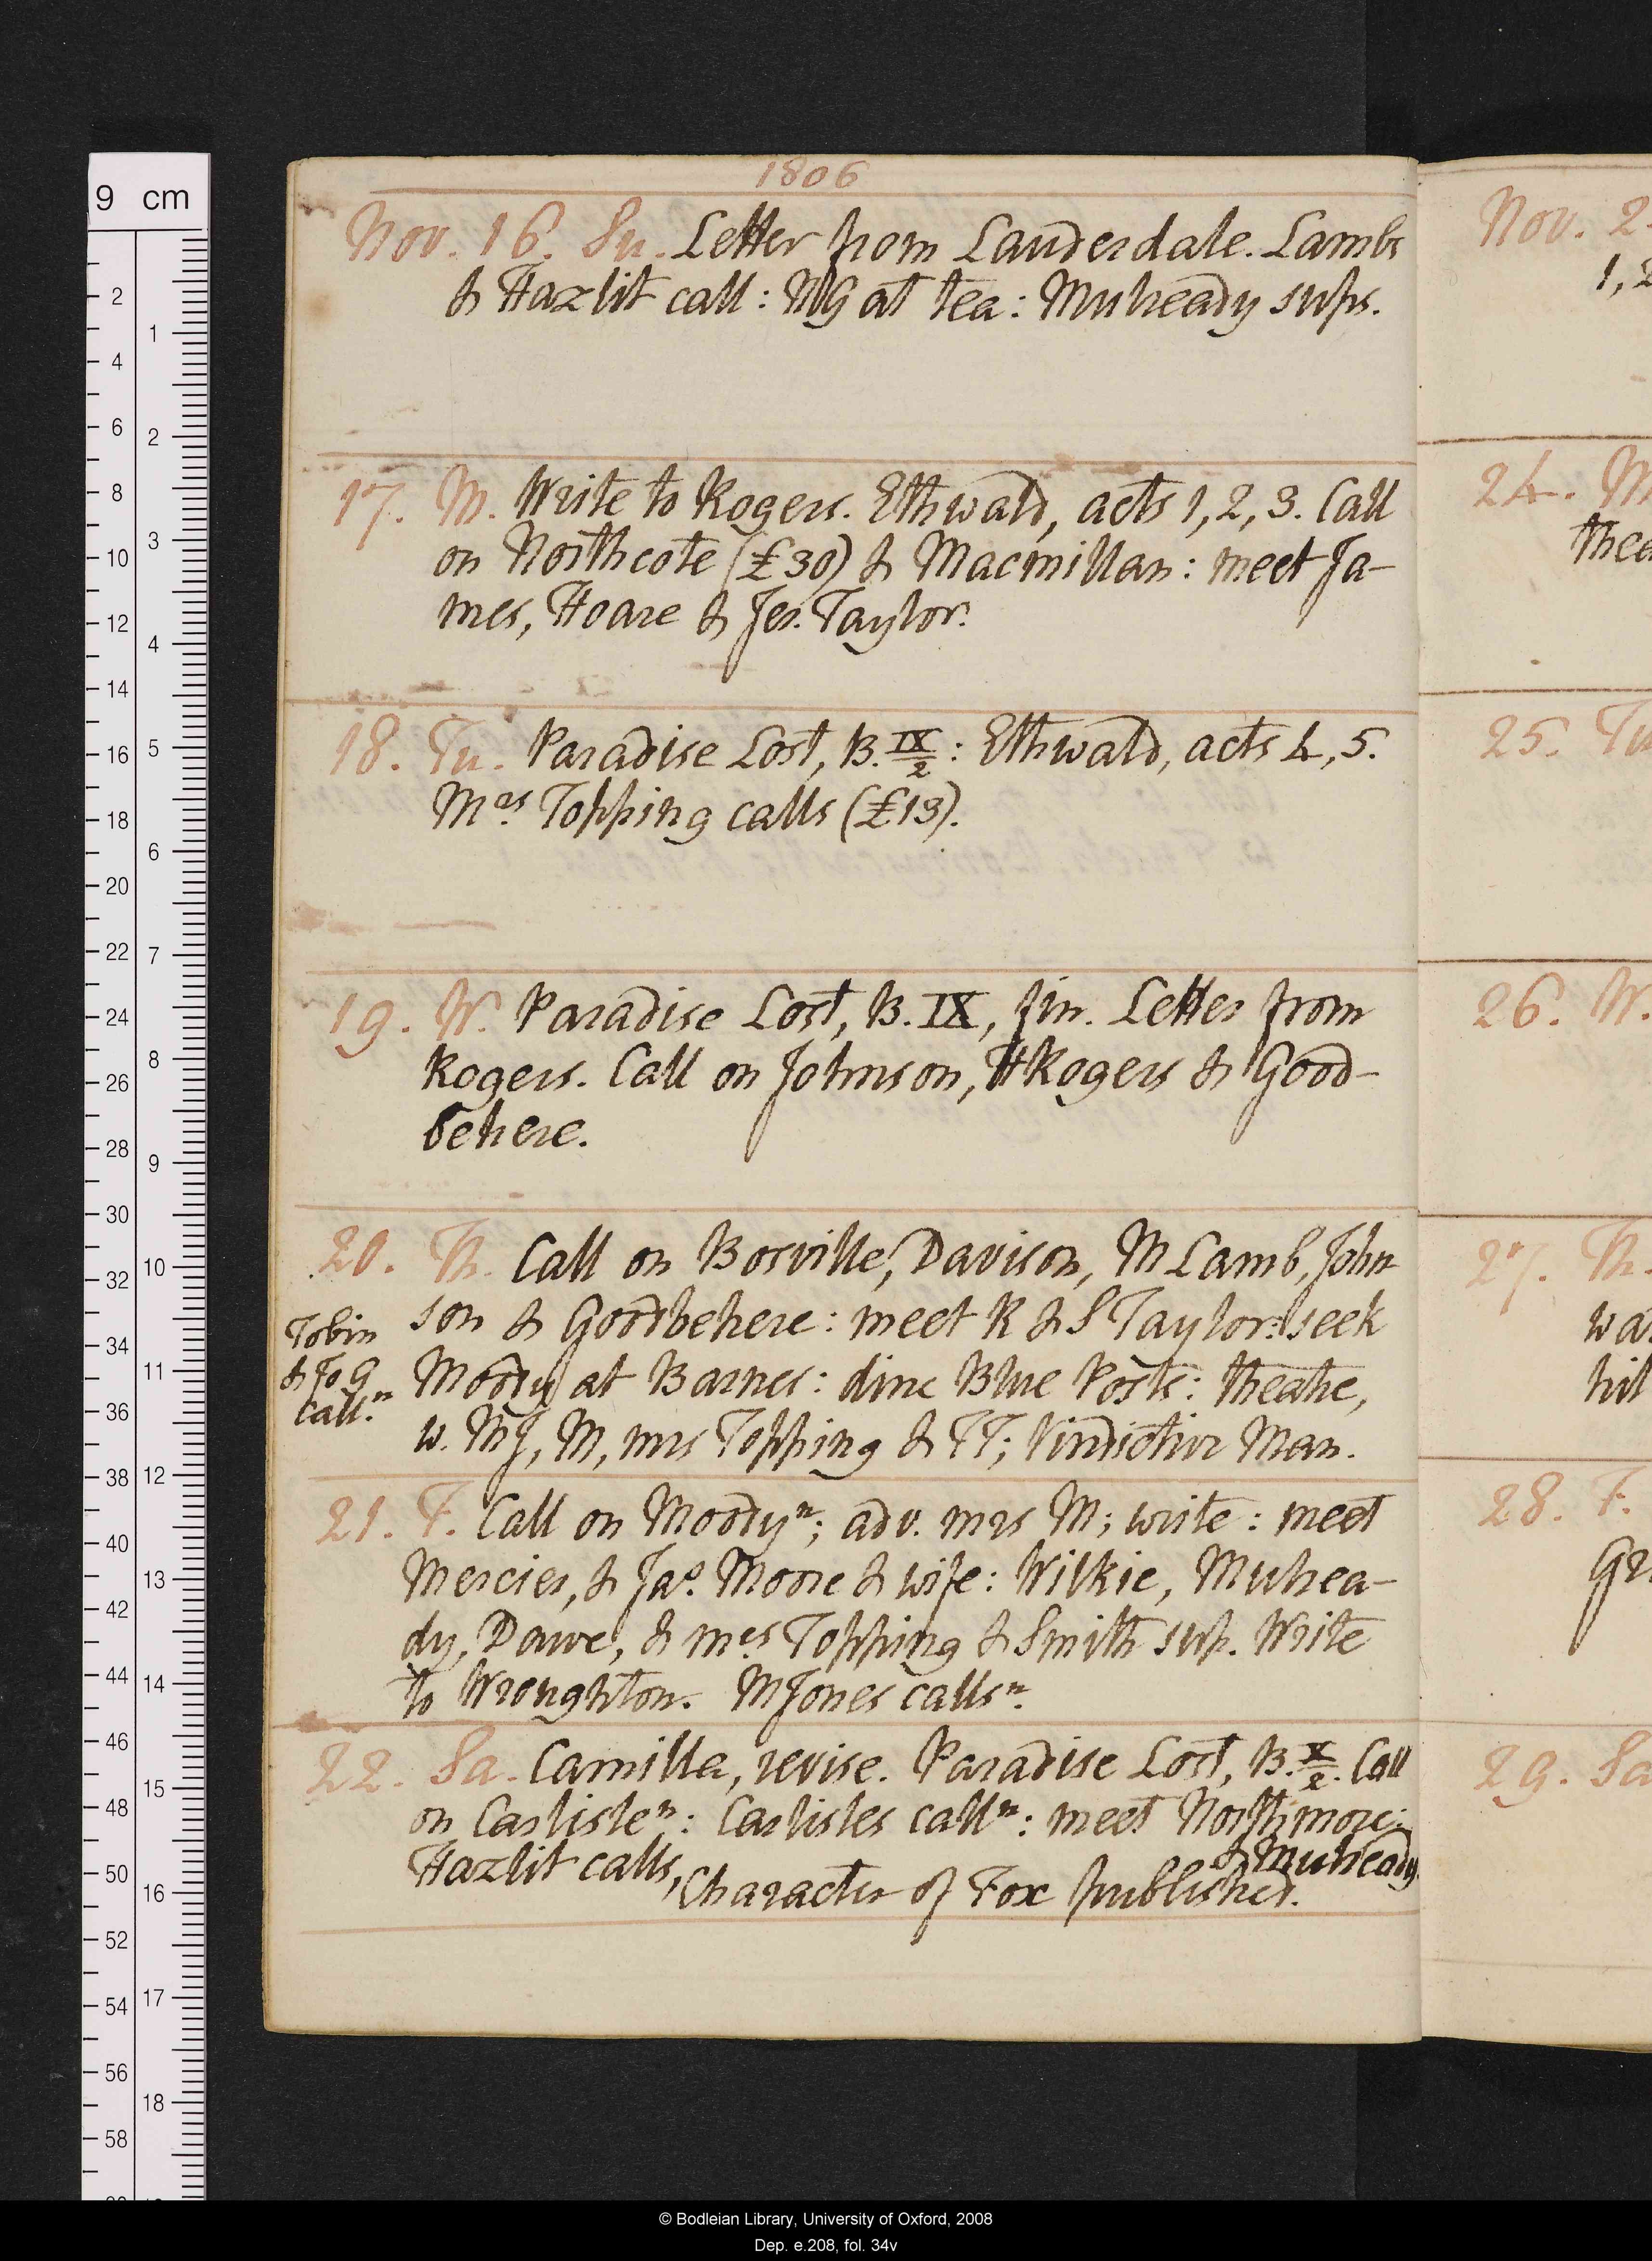 1806
Nov. 16. Su. Letter from Lauderdale. Lambs
& Hazlit call: MG at tea: Mulready sups.
17. M. Write to Rogers. Ethwald, acts 1, 2, 3. Call
on Northcote (£30) & Macmillan: meet Ja-
mes, Hoare & Jer. Taylor.
18. Tu. Paradise Lost, B. IX/2: Ethwald, acts 4, 5.
Mrs Topping calls (£13).
19. W. Paradise Lost, B. IX, fin. Letter from
Rogers. Call on Johnson, HRogers & Good-
behere.
20. Th. Call on Bosville, Davison, M Lamb, John
son & Goodbehere: meet R & S Taylor: seek
Tobin
& Jo G
call.n
Moody at Barnes: dine Blue Posts: theatre,
w. MJ, M, mrs Topping & TT; Vindictive Man.
21. F. Call on Moodyn; adv. mrs M; write: meet
Mercier, & Jas. Moore & wife: Wilkie, Mulrea-
dy, Dawe, & mrs Topping & Smith sup. Write
to Wroughton. MJones callsn.
22. Sa. Camilla, revise. Paradise Lost, B. X/2. Call
on Carlislen: Carlisles calln: meet Northmore:
Hazlit calls, & Mulready.
Character of Fox published.
Nov. 2
1, 2
24. M
thea
25. Tu
26. W.
27. Th.
wa
hil
28. F.
Gr
29. Sa
9 cm
2 4 6 8 10 12 14 16 18 20 22 24 26 28 30 32 34 36 38 40 42 44 46 48 50 52 54 56 58
1 2 3 4 5 6 7 8 9 10 11 12 13 14 15 16 17 18
© Bodleian Library, University of Oxford, 2008
Dep. e.208, fol. 34v